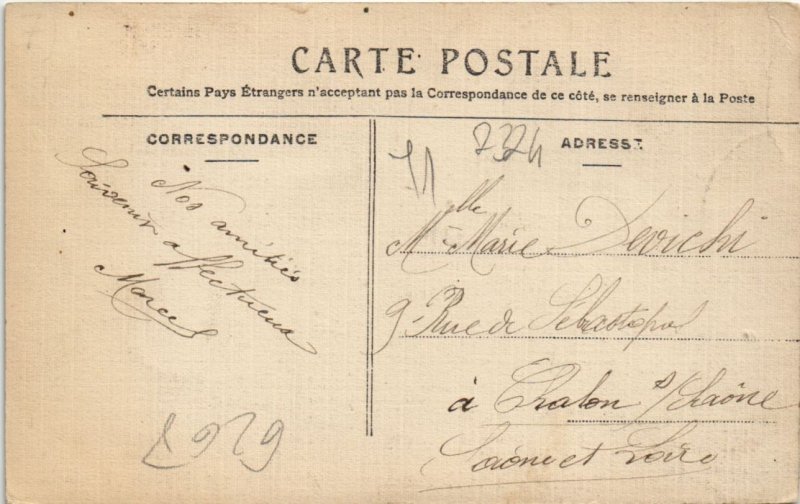 CARTE POSTALE
Certains Pays Étrangers n'acceptent pas la Correspondance de ce côté, se renseigner à la Poste
CORRESPONDANCE
ADRESSE
7324
Nos amitiés
Souvenir affectueux
Marcel
Mlle Marie Devichi
9 Rue de Sébastopol
à Chalon s/Saône
Saône et Loire